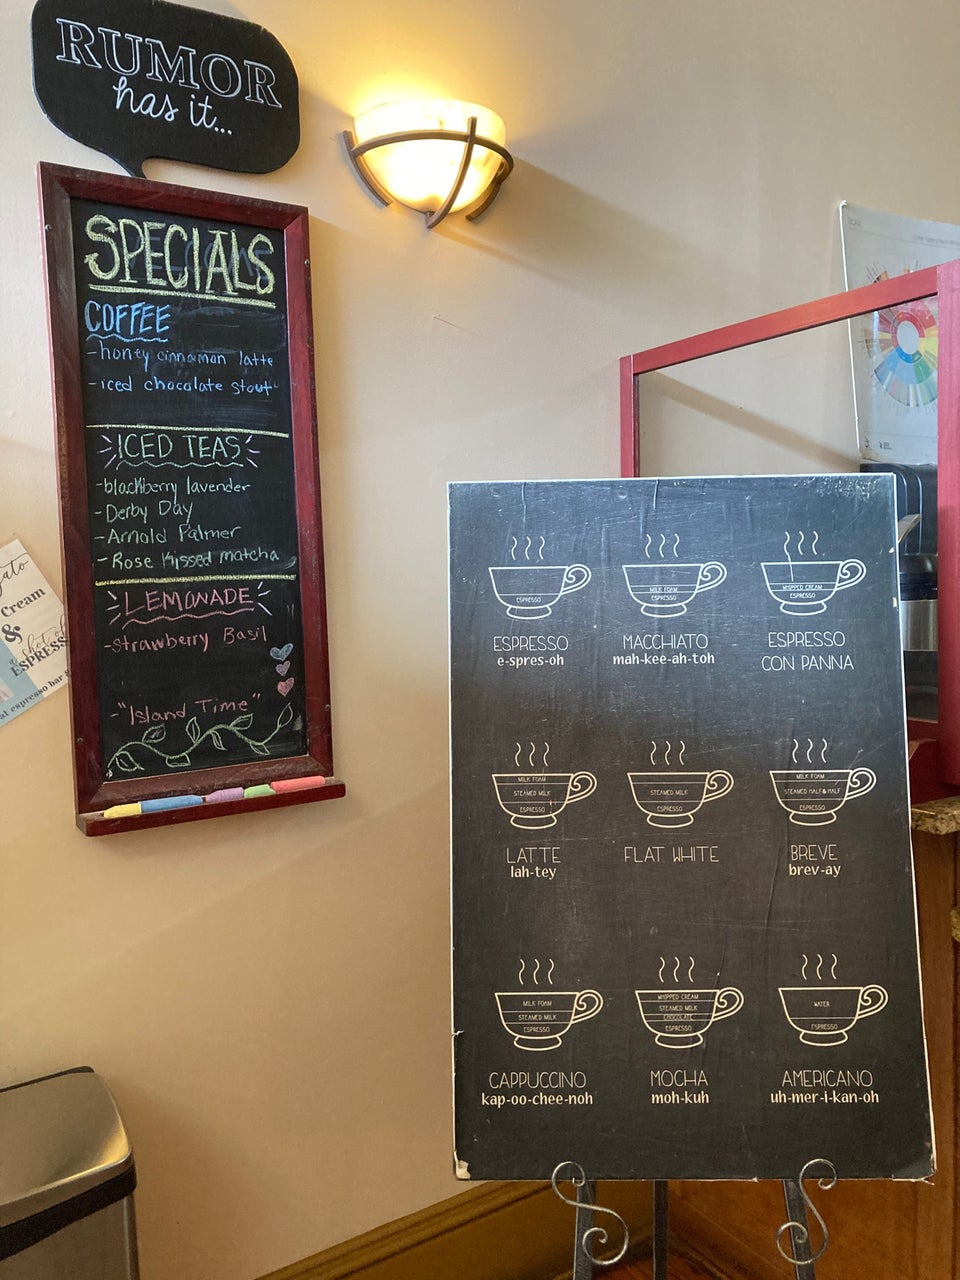 RUMOR
has it...
SPECIALS
COFFEE
-honey cinnamon latte
-iced chocolate stout
ICED TEAS
-blackberry lavender
-Derby Day
-Arnold Palmer
-Rose Kissed matcha
LEMONADE
-Strawberry Basil
-"Island Time"
Cream
&
ESPRESS
espresso bar
WHIPPED CREAM
ESPRESSO
MILK FOAM
ESPRESSO
ESPRESSO
ESPRESSO
e-spres-oh
MACCHIATO
mah-kee-ah-toh
ESPRESSO
CON PANNA
MILK FOAM
STEAMED MILK
ESPRESSO
STEAMED MILK
ESPRESSO
MILK FOAM
STEAMED HALF & HALF
ESPRESSO
LATTE
lah-tey
FLAT WHITE
BREVE
brev-ay
MILK FOAM
STEAMED MILK
ESPRESSO
WHIPPED CREAM
STEAMED MILK
CHOCOLATE
ESPRESSO
WATER
ESPRESSO
CAPPUCCINO
kap-oo-chee-noh
MOCHA
moh-kuh
AMERICANO
uh-mer-i-kan-oh